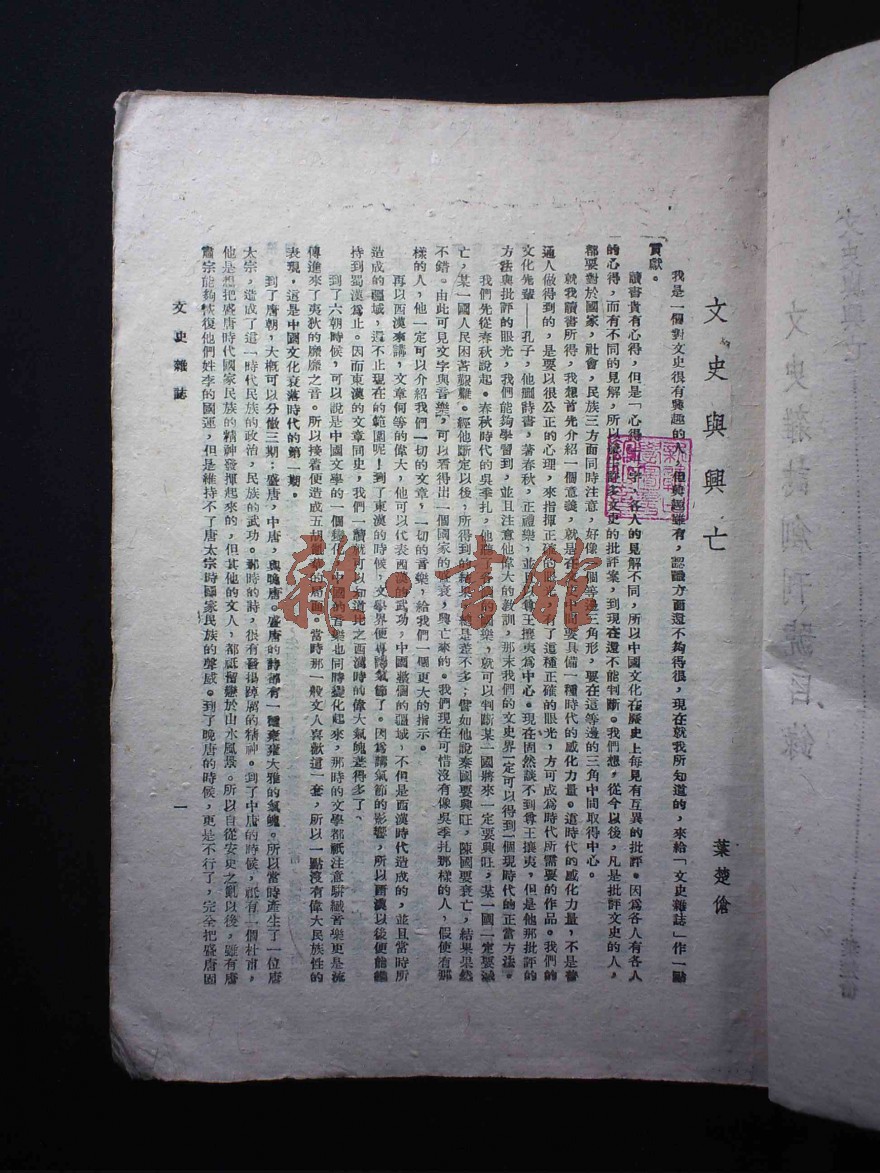 文史與興亡
葉楚傖
我是一個對文史很有興趣的人，但興趣雖有，認識方面還不夠得很，現在就我所知道的，來給「文史雜誌」作一點
貢獻。
讀書貴有心得，但是「心得」各人的見解不同，所以中國文化在歷史上每見有互異的批評。因為各人有各人
的心得，而有不同的見解，所以許多文史的批評案，到現在還不能判斷。我們想，從今以後，凡是批評文史的人，
都要對於國家，社會，民族三方面同時注意，好像一個等邊三角形，要在這等邊的三角中間取得中心。
就我讀書所得，我想首先介紹一個意義，就是在文史中間要具備一種時代的感化力量。這時代的感化力量，不是普
通人做得到的，是要以很公正的心理，來指揮正確的眼光，有了這種正確的眼光，方可成為時代所需要的作品。我們的
文化先輩——孔子，他刪詩書，著春秋，正禮樂，並且以尊王攘夷為中心。現在固然談不到尊王攘夷，但是他那批評的
方法與批評的眼光，我們能夠學習到，並且注意他偉大的教訓，那末我們的文史界一定可以得到一個現時代的正當方法。
我們先從春秋說起。春秋時代的吳季扎，他聽了各國的音樂，就可以判斷某一國將來一定要興旺，某一國一定要滅
亡，某一國人民困苦艱難。經他斷定以後，所得到的結果總是差不多；譬如他說秦國要興旺，陳國要衰亡，結果果然
不錯。由此可見文字與音樂，可以看得出一個國家的盛衰，興亡來的。我們現在可惜沒有像吳季扎那樣的人，假使有那
樣的人，他一定可以介紹我們一切的文章，一切的音樂，給我們一個更大的指示。
再以西漢來講，文章何等的偉大，他可以代表西漢的武功，中國整個的疆域，不但是西漢時代造成的，並且當時所
造成的疆域，還不止現在的範圍呢！到了東漢的時候，文學界便專講氣節了。因為講氣節的影響，所以西漢以後便能繼
持到蜀漢為止。因而東漢的文章同史，我們一讀就可以知道比之西漢時的偉大氣魄差得多了。
到了六朝時候，可以說是中國文學的一個變化，中國的音樂也同時變化起來，那時的文學都祇注意駢纖音樂更是流
傳進來了夷狄的靡靡之音。所以接着便造成五胡亂華的局面。當時那一般文人喜歡這一套，所以一點沒有偉大民族性的
表現，這是中國文化衰落時代的第一期。
到了唐朝，大概可以分做三期：盛唐，中唐，與晚唐。盛唐的詩都有一種雍雍大雅的氣魄。所以當時產生了一位唐
太宗，造成了這一時代民族的政治，民族的武功。那時的詩，很有發揚踔厲的精神。到了中唐的時候，祇有一個杜甫，
他是想把盛唐時代國家民族的精神發揮起來的，但其他的文人，都祇留戀於山水風景。所以自從安史之亂以後，雖有唐
肅宗能夠恢復他們姓李的國運，但是維持不了唐太宗時國家民族的聲威。到了晚唐的時候，更是不行了，完全把盛唐固
文史雜誌
一
文史雜誌創刊號目錄
文史與興亡
雜·書館